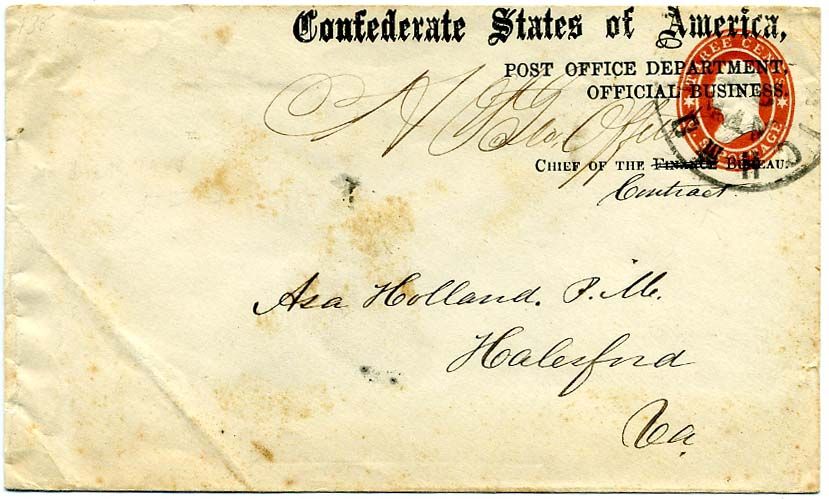 135
Confederate States of America,
POST OFFICE DEPARTMENT.
OFFICIAL BUSINESS.
THREE CENTS
U.S. POSTAGE
CHIEF OF THE FINANCE BUREAU.
Contract
Asa Holland. P.M.
Halesford
Va